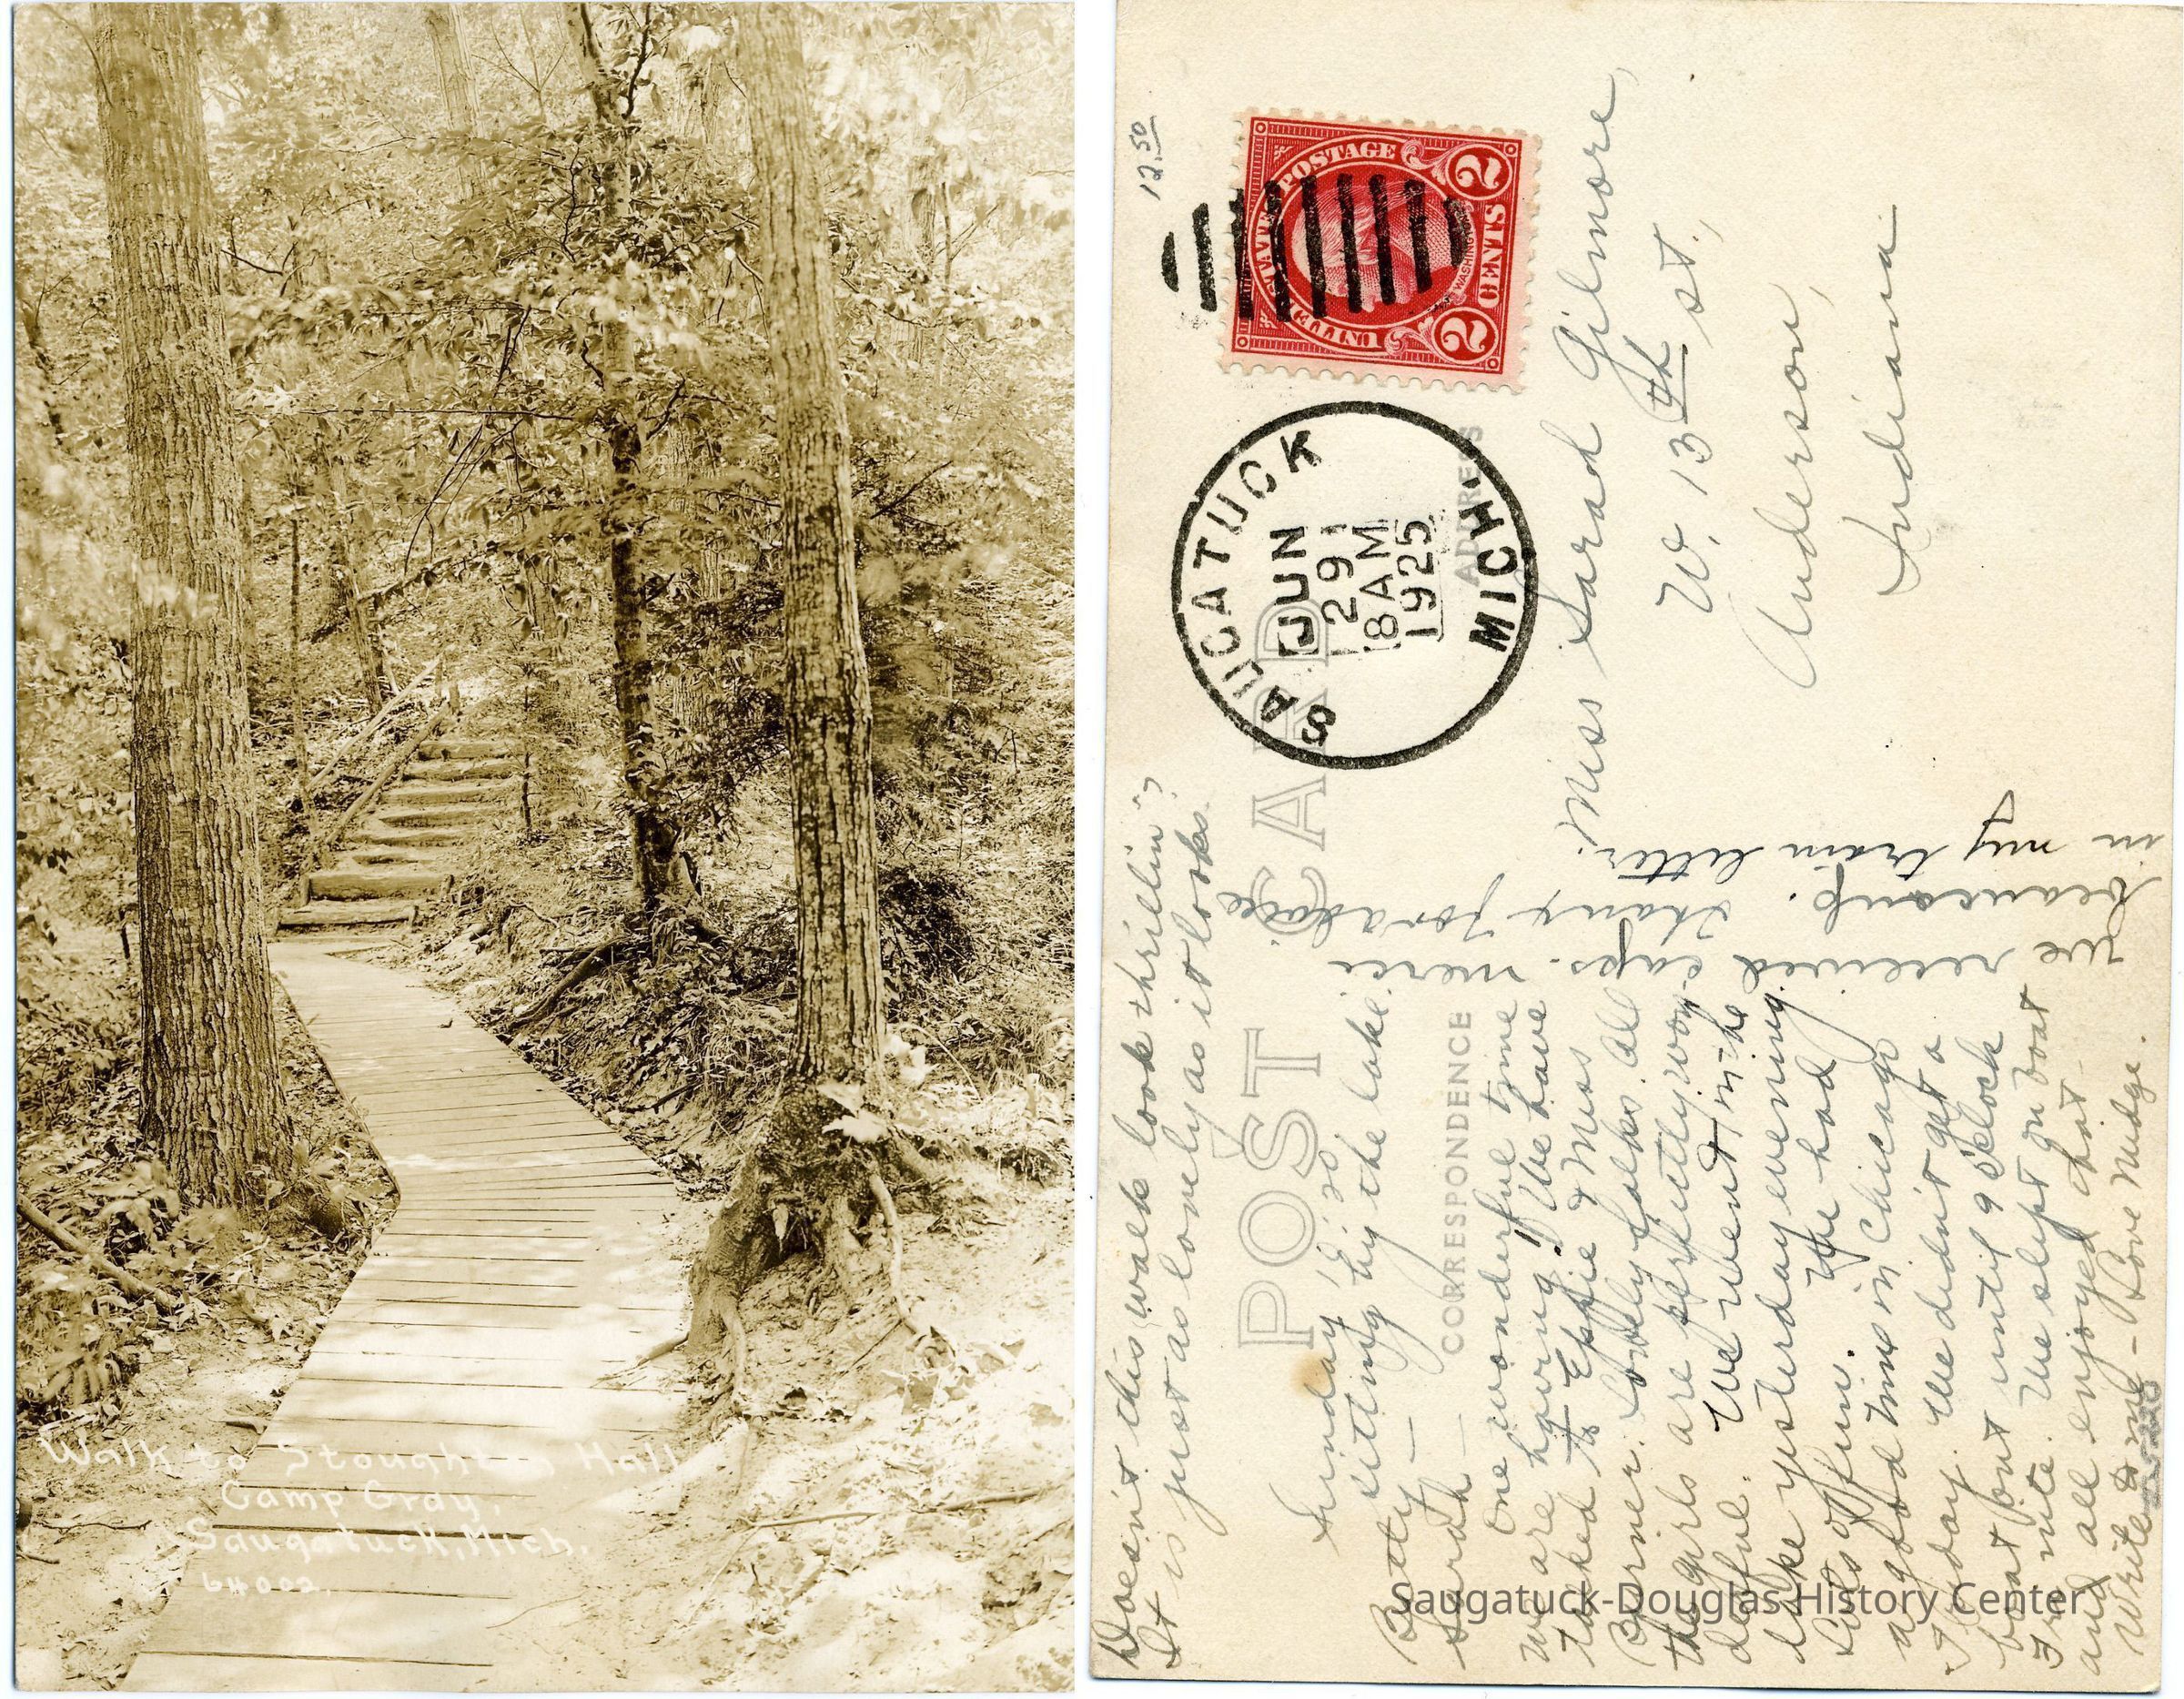 Walk to Stoughton Hall
Camp Gray,
Saugatuck, Mich.
64002.
12.50
UNITED STATES POSTAGE
WASHINGTON
2 CENTS 2
SAUGATUCK
JUN
29
8 AM
1925
MICH.
POST CARD
CORRESPONDENCE
ADDRESS
Miss Sarah Gilmore,
W. 13th St.,
Anderson,
Indiana
Doesn't this walk look thrillin'?
It is just as lovely as it looks.
Sunday,
sitting by the lake.
Betty —
Sarah —
One wonderful time
we are having! We have
talked to Effie & Miss
lovely talks. All
the girls are perfectly won-
derful. We went in the
lake yesterday evening.
Lots of fun. We had
a good time in Chicago
Friday. We didn't get a
boat out until 9 o'clock
Fri. nite. We slept on boat
and all enjoyed that.
Write to me - Love Mudge.
We received caps. merci
beaucoup. Thanx for
in my train letter.
Saugatuck-Douglas History Center